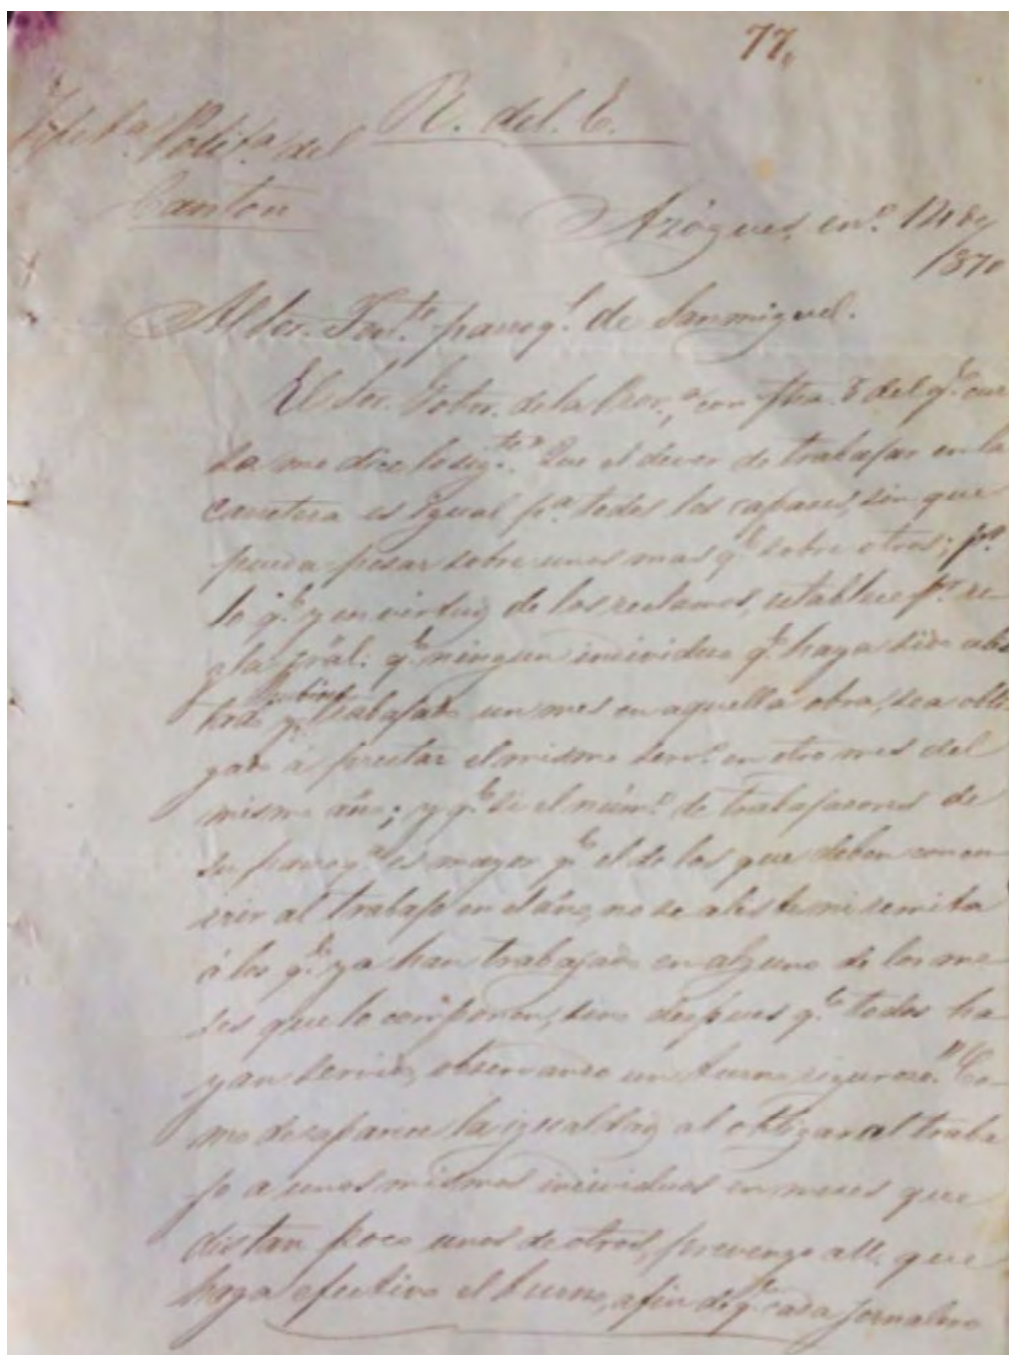 77,
R. del. E.
Jefat.ª Polít.ª del
Canton
Azógues, en.º 12 de
1870
Al Sor. Ten.te parroq.l de Sanmiguel.
El Sor. Gobor. de la Prov.ª con fha. 8 del q.e cur
sa me dice lo sig.te " Que el dever de trabajar en la
carretera es igual p.ª todos los capases, sin que
pueda pesar sobre unos mas q.e sobre otros; p.r
lo q.e y en virtud de los reclamos, establesco p.r re-
gla gral. q.e ningun individuo q.e haya sido alis
tado y hubiese trabajado un mes en aquella obra, sea obli
gado á prestar el mismo serv.º en otro mes del
mismo año; y q.e si el núm.º de trabajadores de
su parroq.ª es mayor q.e el de los que deben concu
rrir al trabajo en el año, no se aliste ni remita
á los q.e ya han trabajado en alguno de los me-
ses que lo componen, sino despues q.e todos ha-
yan servido, observando un turno riguroso." Co-
mo desaparece la igualdad al obligar al traba
jo a unos mismos individuos en meses que
distan poco unos de otros, prevengo a U. que
haga efectivo el turno, a fin de q.e cada jornalero